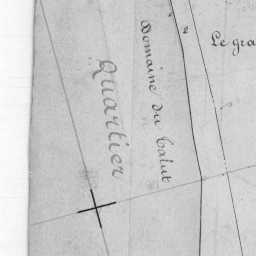 Quartier
Domaine du Calut
Le gra